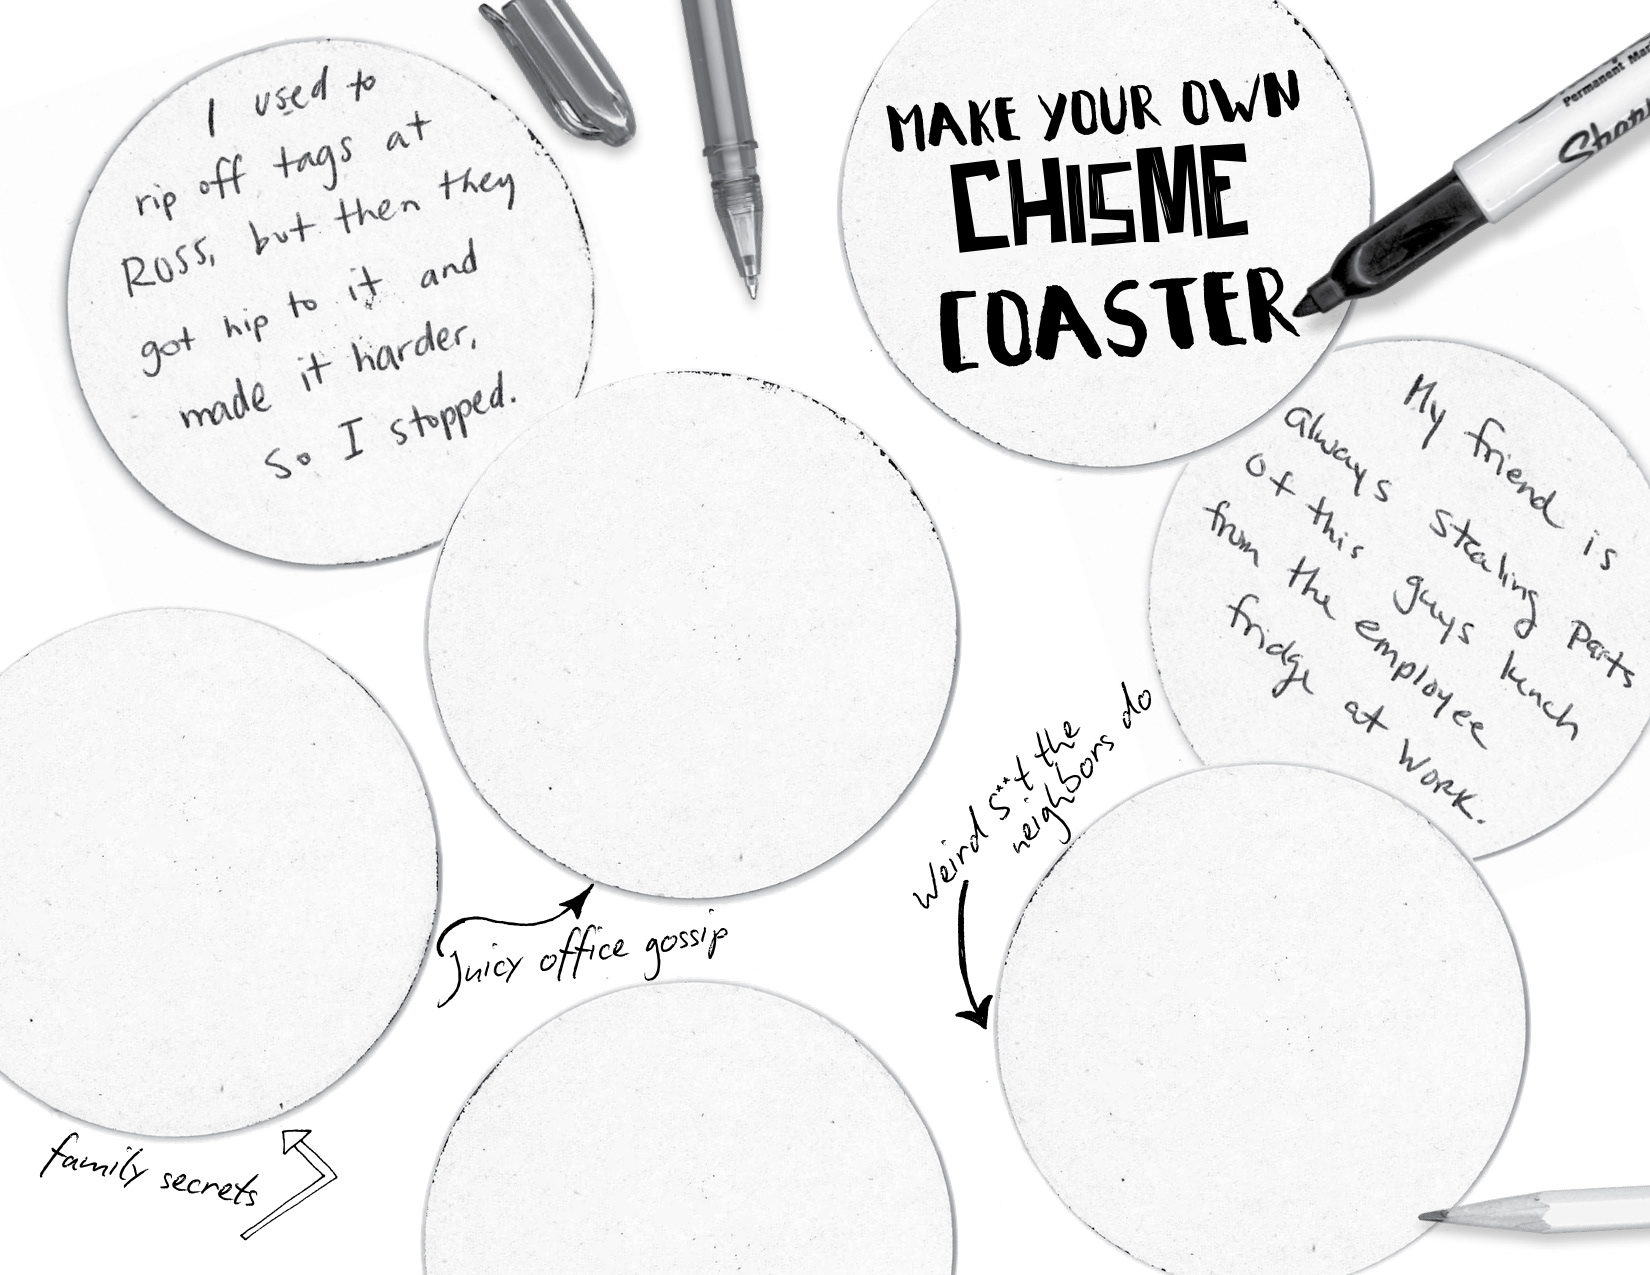 I used to
rip off tags at
ROSS, but then they
got hip to it and
made it harder,
So I stopped.
MAKE YOUR OWN
CHISME
COASTER
Permanent Mar
Sharp
My friend is
always stealing parts
of this guys lunch
from the employee
fridge at work.
Weird s**t the
neighbors do
Juicy office gossip
family secrets